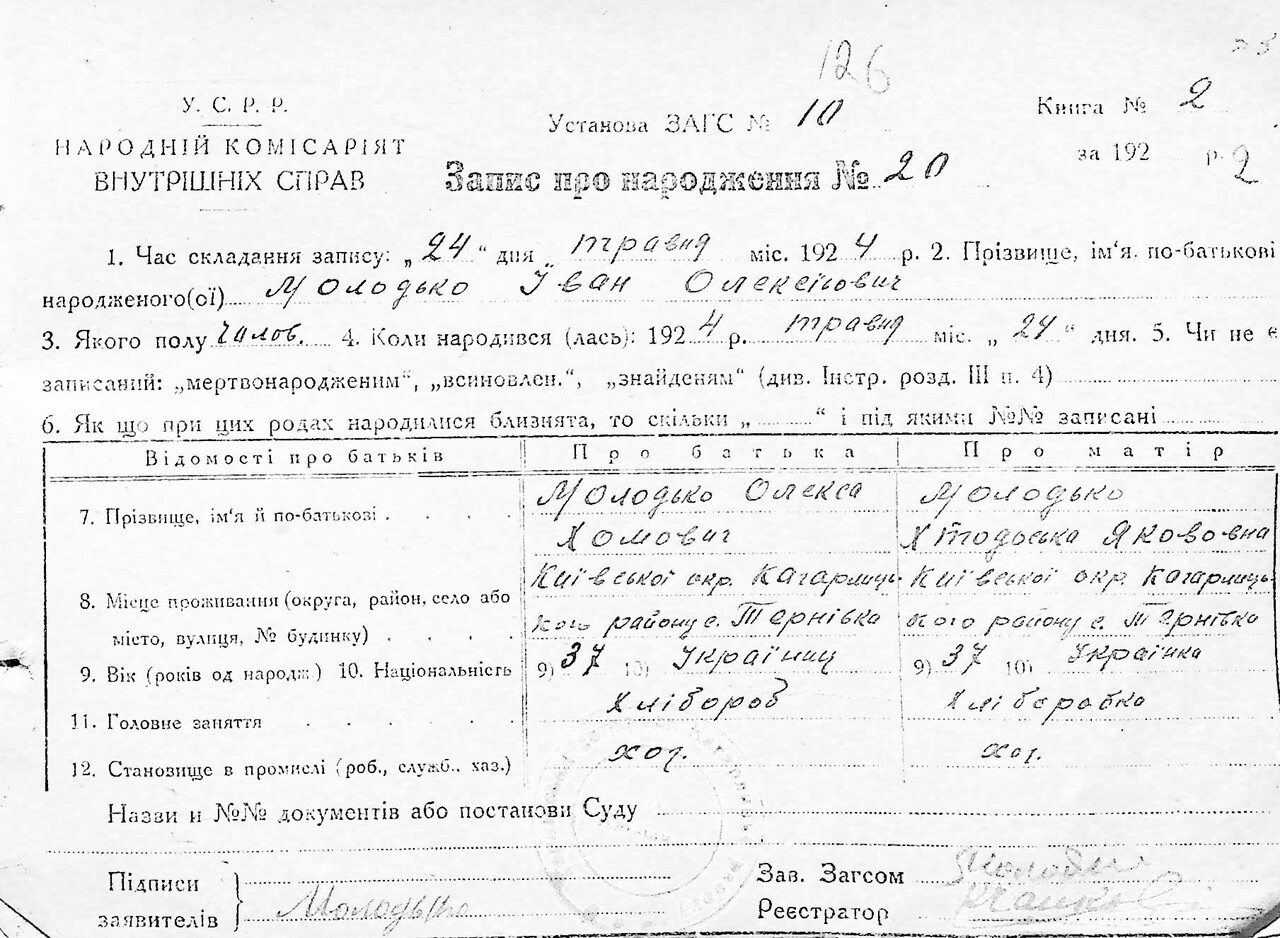 126
У. С. Р. Р.
НАРОДНІЙ КОМІСАРІЯТ
ВНУТРІШНІХ СПРАВ
Установа ЗАГС № 10
Книга № 2
за 192 р. 2
Запис про народження № 20
1. Час складання запису: „24“ дня „травня міс. 1924 р. 2. Прізвище, ім‘я. по-батькові
народженого(ої) Молодько Іван Олексійович
3. Якого полу чалов. 4. Коли народився (лась): 1924 р. травня міс. „24“ дня. 5. Чи не є
записаний: „мертвонародженим“, „всиновлен.“, „знайденям“ (див. Інстр. розд. III п. 4)
6. Як що при цих родах народилися близнята, то скільки „ “ і під якими №№ записані
Відомості про батьків Про батька Про матір
7. Прізвище, ім‘я й по-батькові Молодько Олекса Молодько
Хомович Хтодоська Яковівна
8. Місце проживання (округа, район, село або Київської окр. Кагарлиць- Київської окр. Кагарлиць-
місто, вулиця, № будинку) кого району с. Тернівка кого району с. Тернівка
9. Вік (років од народж.) 10. Національність 9) 37 10) Українц 9) 37 10) Українка
11. Головне заняття Хлібороб Хліборабка
12. Становище в промислі (роб., служб., хаз.) хоз. хоз.
Назви и №№ документів або постанови Суду
Підписи
заявителів Молодько
Зав. Загсом
Реєстратор